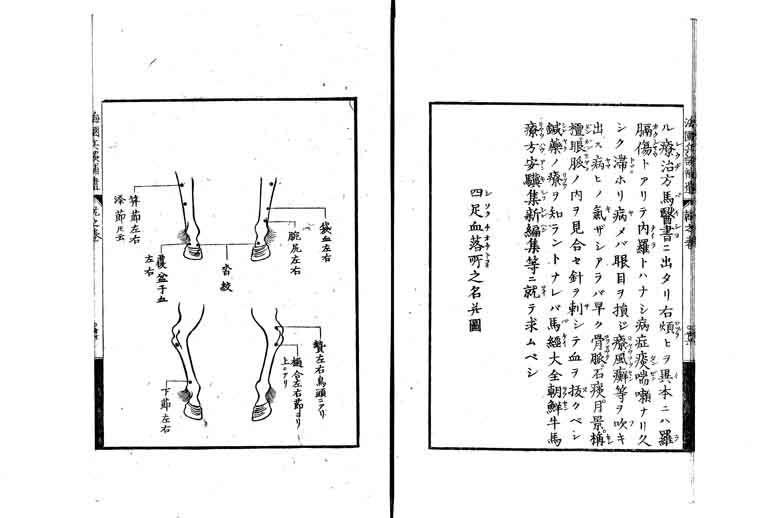 ル療治方馬醫書ニ出タリ右煩ヒヲ異本ニハ羅
膈傷トアリテ内羅トハナシ病症痰喘嗽ナリ久
シク滯ホリ病メバ眼目ヲ損ジ療風癬等ヲ吹キ
出ス病ヒノ氣ザシアラバ早ク骨脈石痰月景稱
檀眼脈ノ内ヲ見合セ針ヲ刺シテ血ヲ拔クベシ
鍼藥ノ療ヲ知ラントナレバ馬經大全朝鮮牛馬
療方安驥集新編集等ニ就テ求ムベシ
四足血落所之名并圖
袋血左右
腕尻左右
當紋
覆盆子血
左右
筭節左右
添節トモ云
贅左右鳥頭ニアリ
樋合左右節ヨリ
上ニアリ
下節左右